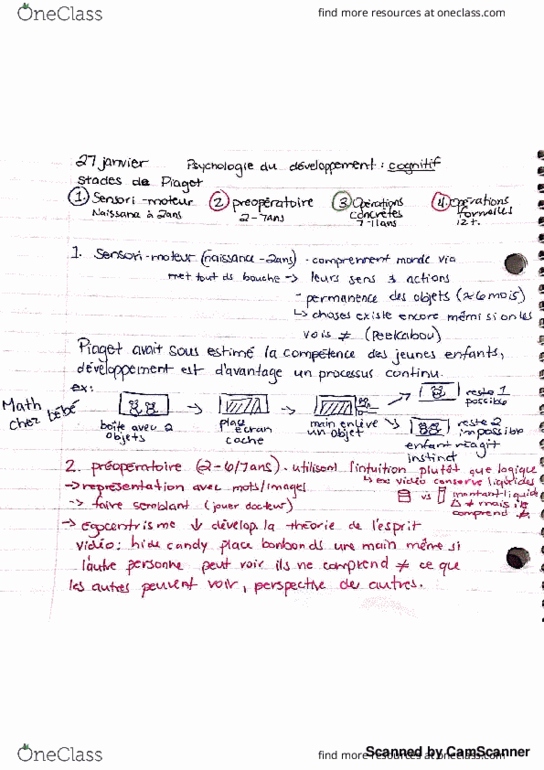 OneClass
find more resources at oneclass.com
27 janvier Psychologie du développement : cognitif
Stades de Piaget
1. Sensori-moteur 2 préopératoire 3 Opérations concrètes 4. Opérations formelles
Naissance à 2ans 2-7ans 7-11ans 12+.
1. Sensori-moteur (naissance-2ans) • comprennent monde via
met tout ds bouche → leurs sens & actions
- permanence des objets (≈6mois)
↳ choses existe encore mêmi si on les
vois ≠ (Peekabou)
Piaget avait sous estimé la compétence des jeunes enfants,
développement est d'avantage un processus continu.
ex:
Math chez bébé
boîte avec 2 objets
place écran cache
main enlève un objet
reste 1 possible
reste 2 impossible
enfant réagit
instinct
2. préopératoire (2-6/7ans) • utilisent l'intuition plutôt que logique
↳ ex vidéo conserve liquides
→ représentation avec mots/images
vs montant liquide
Δ ≠ mais ils
comprend ≠
-> faire semblant (jouer docteur)
→ Egocentrisme ↓ dévelop. la théorie de l'esprit
vidéo: hide candy place bonbonds une main même si
l'autre personne peut voir ils ne comprend ≠ ce que
les autres peuvent voir, perspective de autres.
OneClass
find more resources at oneclass.com
Scanned by CamScanner